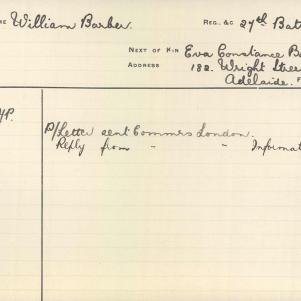 RE William Barber. REG. &C 27th Bat
NEXT OF KIN Eva Constance Ba
ADDRESS 182. Wright Stree
Adelaide.
P/Letter sent Commrs London.
Reply from " " Informat